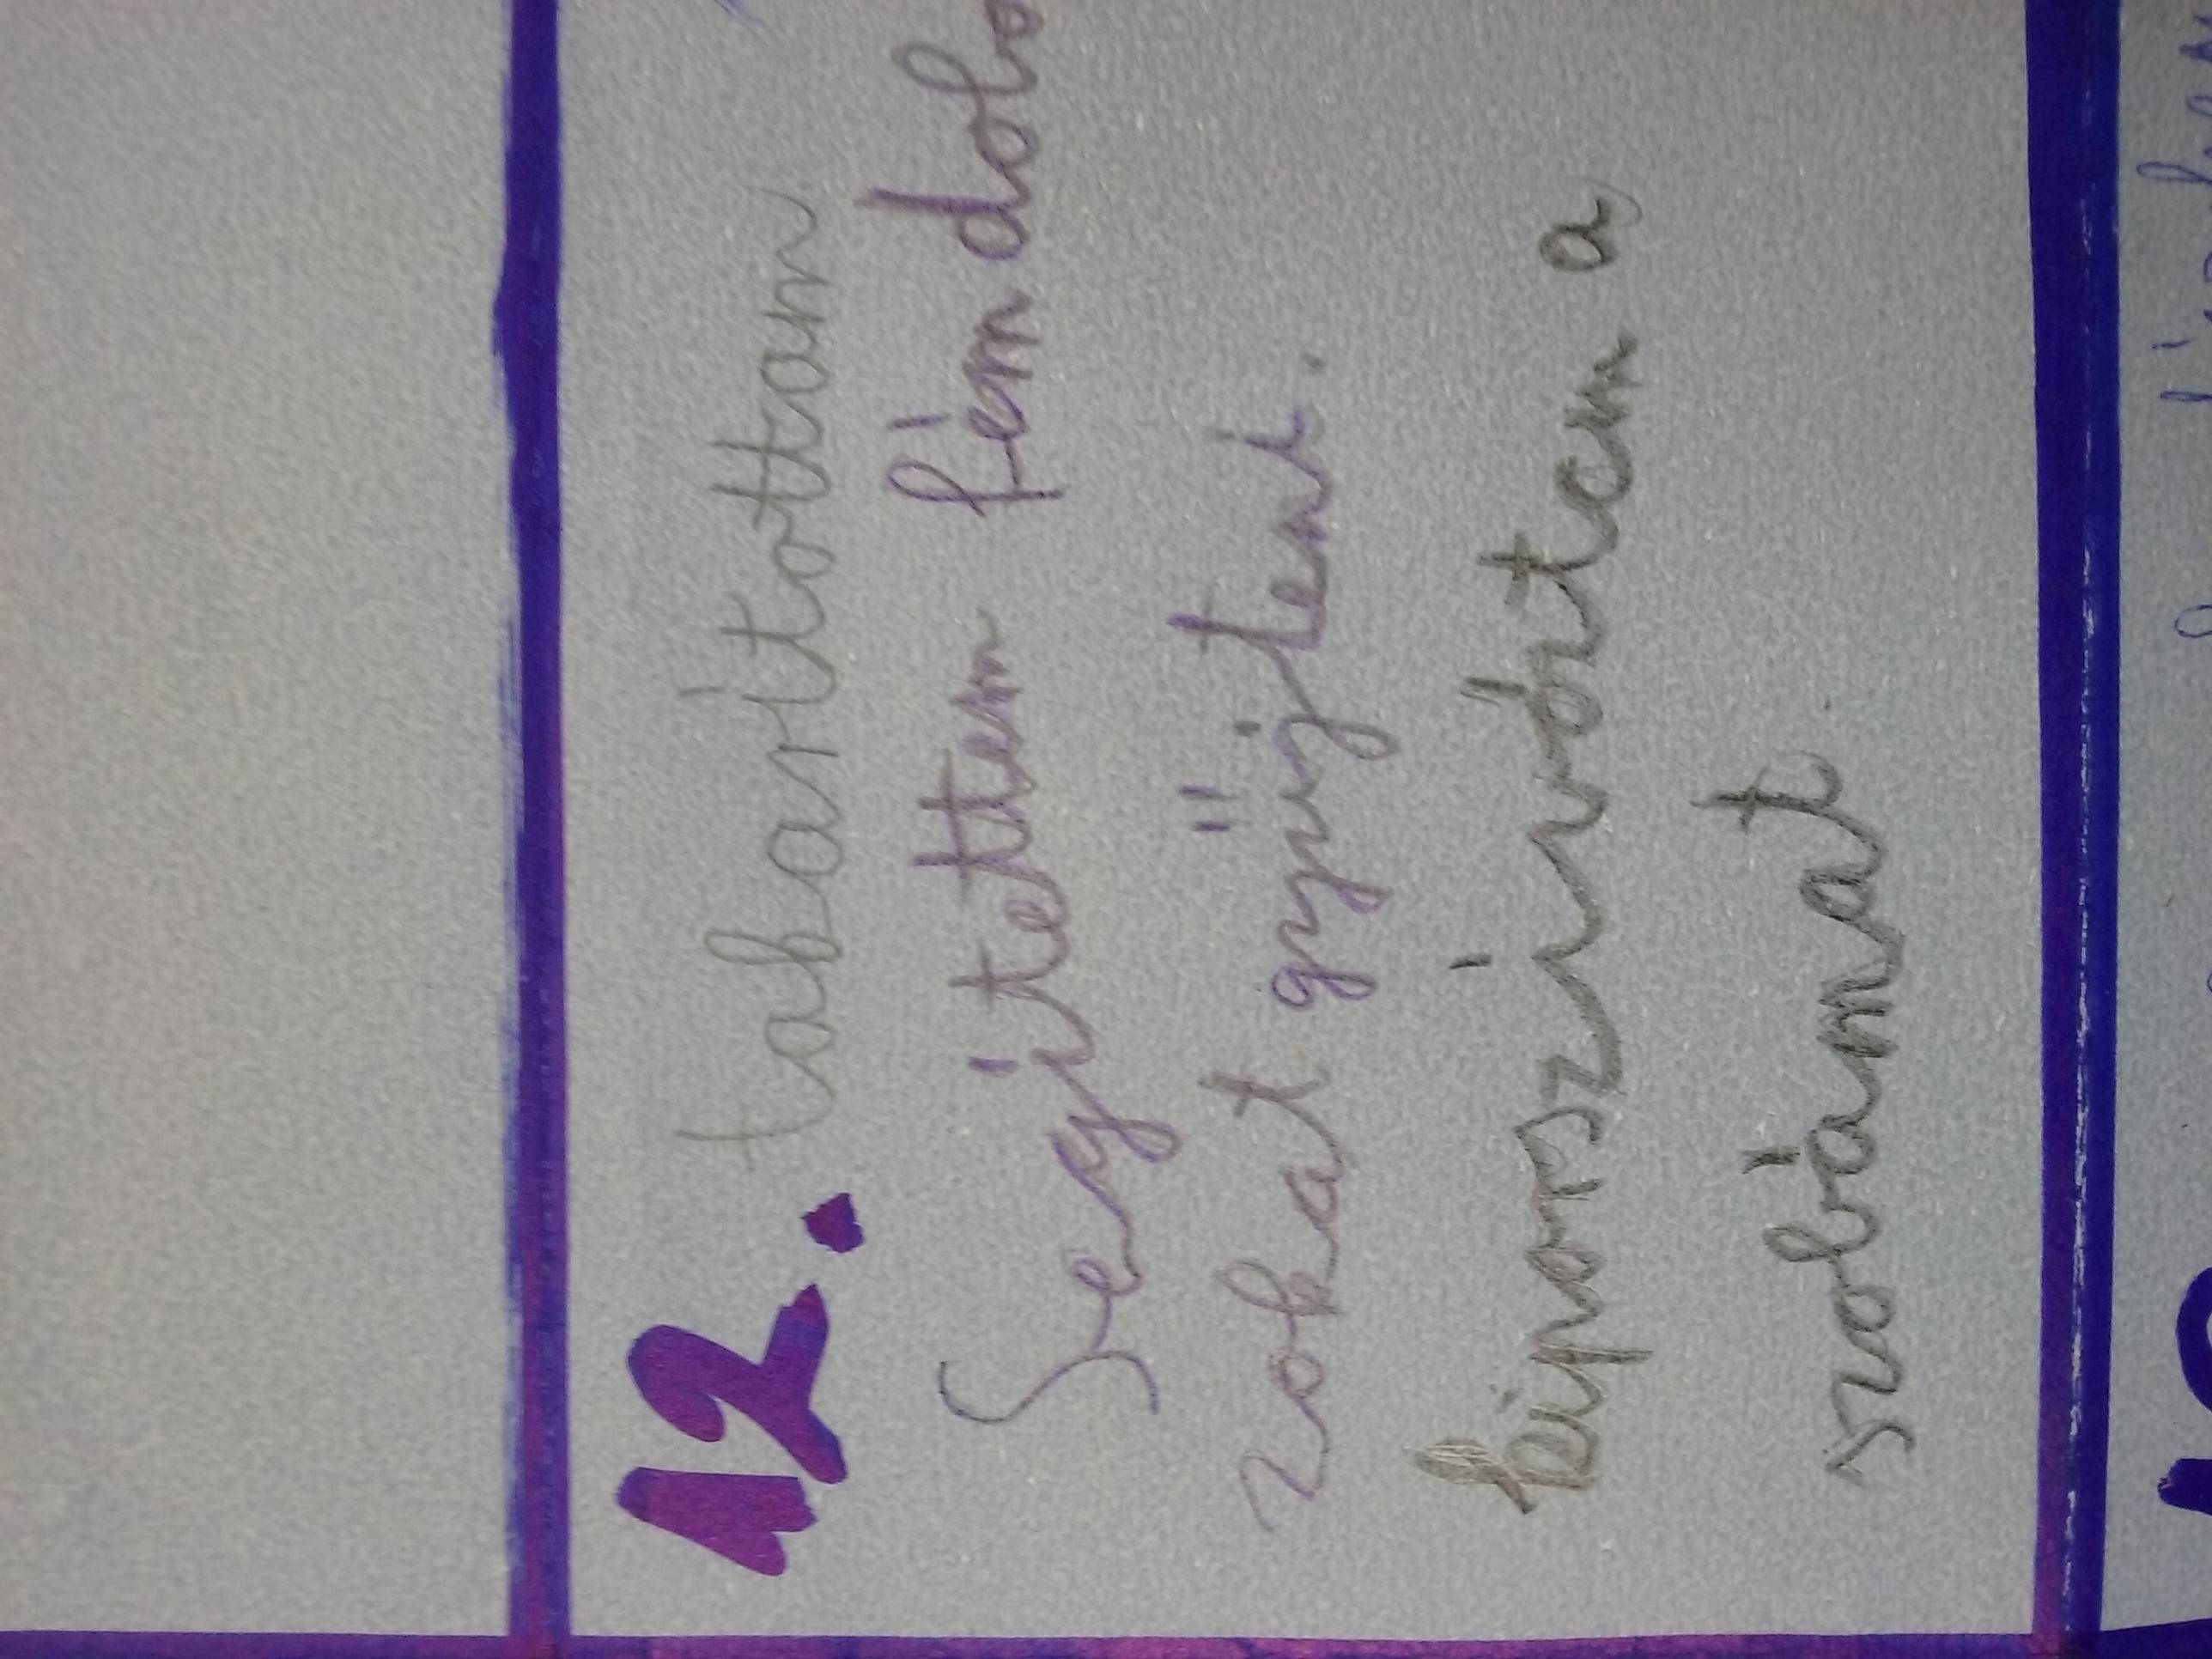 12. takarítottam
Segítettem fém dobo
zokat gyűjteni.
kiporszívóztam a
szobámat